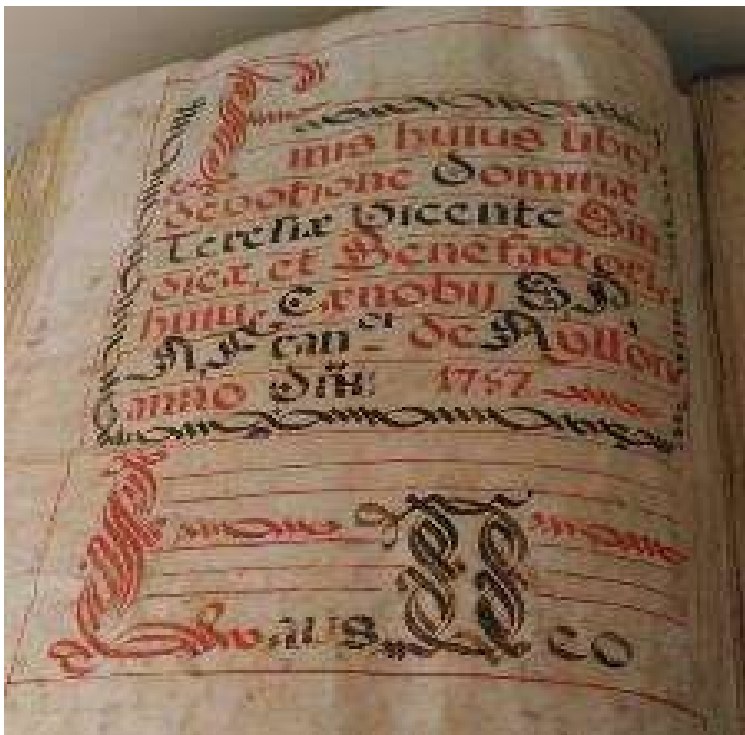 Finis huius libri
devotione Dominæ
Teresiæ Vicente Sin
dicæ, et Benefactoris
huius Cænobij S. P.
can de Ayllon
anno Dñi 1757
Laus Deo